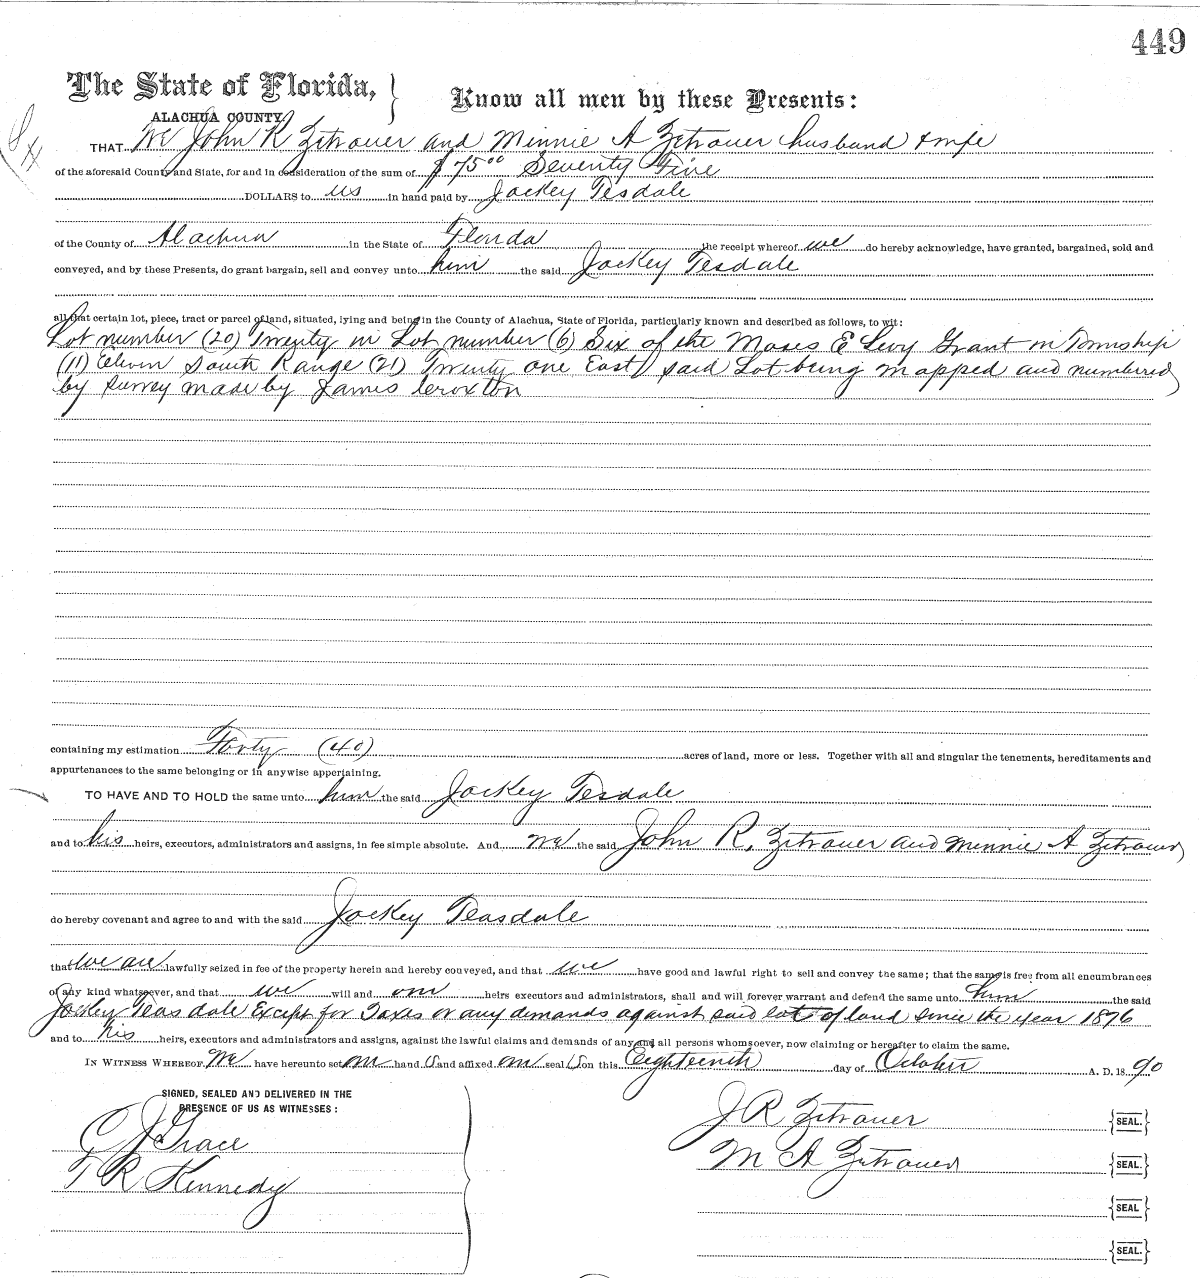 449
The State of Florida, } Know all men by these Presents:
ALACHUA COUNTY.
THAT We John R Zetrouer and Minnie A Zetrouer husband & wife
of the aforesaid County and State, for and in consideration of the sum of $75.00 Seventy Five
DOLLARS to us in hand paid by Jackey Tesdale
of the County of Alachua in the State of Florida the receipt whereof we do hereby acknowledge, have granted, bargained, sold and
conveyed, and by these Presents, do grant bargain, sell and convey unto him the said Jackey Tesdale
all that certain lot, piece, tract or parcel of land, situated, lying and being in the County of Alachua, State of Florida, particularly known and described as follows, to wit:
Lot number (20) Twenty in Lot number (6) Six of the Moses E Levy Grant in Township
(11) Eleven South Range (21) Twenty one East said Lot being mapped and numbered
by survey made by James Croxton
containing my estimation Forty (40) acres of land, more or less. Together with all and singular the tenements, hereditaments and
appurtenances to the same belonging or in anywise appertaining.
TO HAVE AND TO HOLD the same unto him the said Jackey Tesdale
and to his heirs, executors, administrators and assigns, in fee simple absolute. And we the said John R. Zetrouer and Minnie A Zetrouer
do hereby covenant and agree to and with the said Jackey Teasdale
that we are lawfully seized in fee of the property herein and hereby conveyed, and that we have good and lawful right to sell and convey the same; that the same is free from all encumbrances
of any kind whatsoever, and that we will and our heirs executors and administrators, shall and will forever warrant and defend the same unto him the said
Jackey Teasdale Except for Taxes or any demands against said lot of land since the year 1876
and to his heirs, executors and administrators and assigns, against the lawful claims and demands of any and all persons whomsoever, now claiming or hereafter to claim the same.
IN WITNESS WHEREOF, We have hereunto set our hand S and affixed our seal S on this Eighteenth day of October A. D. 1890
SIGNED, SEALED AND DELIVERED IN THE
PRESENCE OF US AS WITNESSES:
C J Grace
T R Kennedy
J R Zetrouer {SEAL.}
M A Zetrouer {SEAL.}
{SEAL}
{SEAL.}